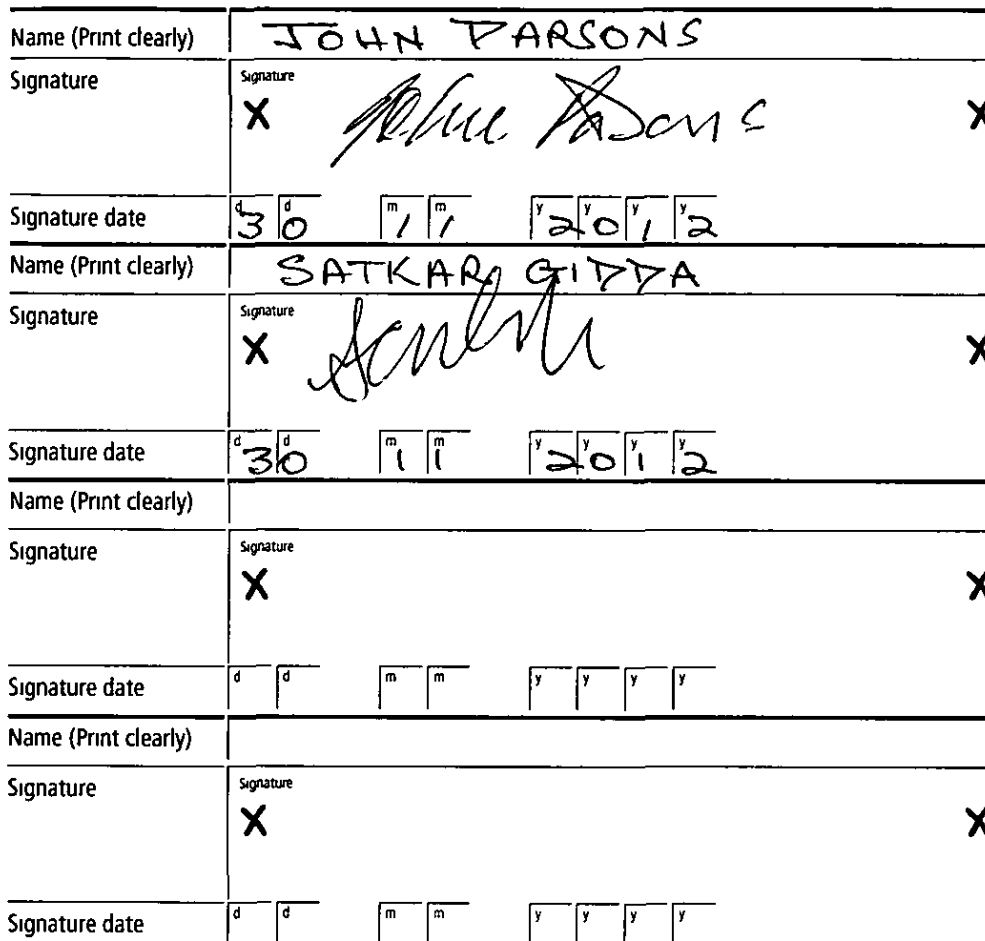 Name (Print clearly) JOHN PARSONS
Signature Signature
X John Parsons X
Signature date d3 d0 m1 m1 y2 y0 y1 y2
Name (Print clearly) SATKAR GIDDA
Signature Signature
X X
Signature date d3 d0 m1 m1 y2 y0 y1 y2
Name (Print clearly)
Signature Signature
X X
Signature date d d m m y y y y
Name (Print clearly)
Signature Signature
X X
Signature date d d m m y y y y